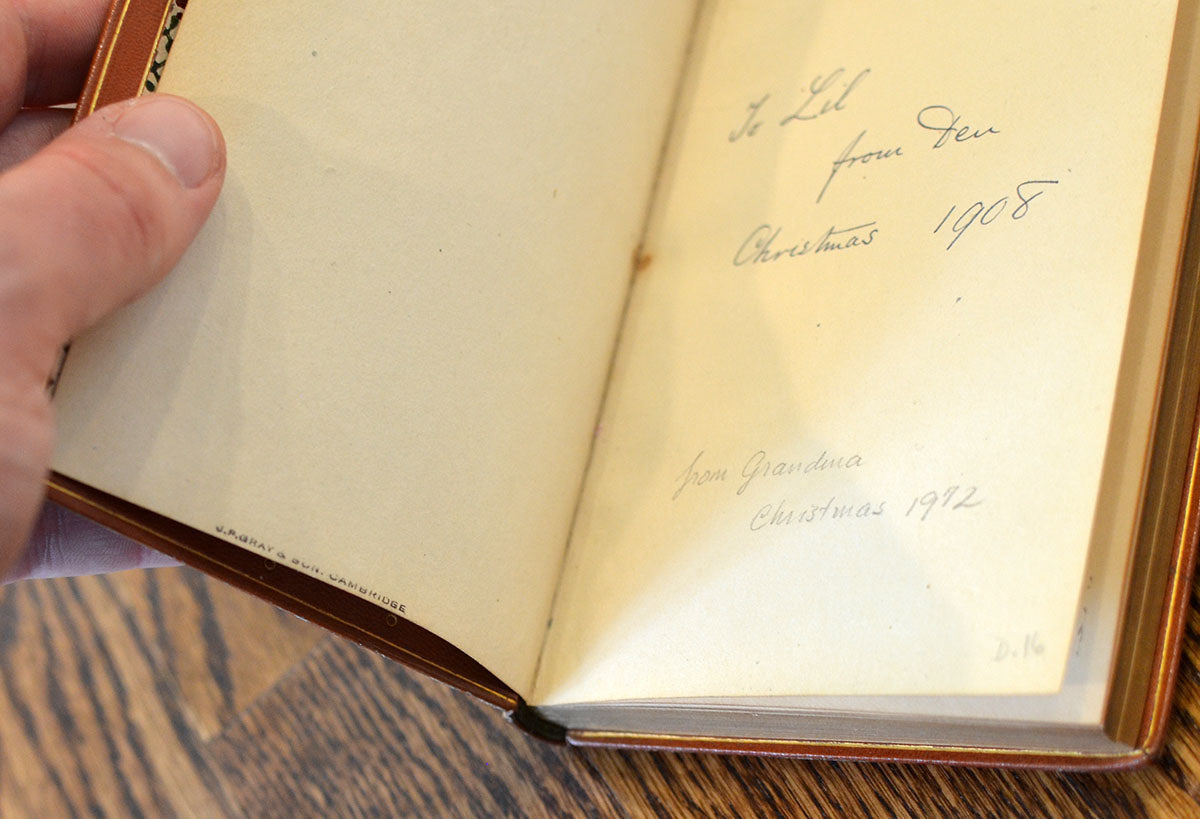 J.P. GRAY & SON. CAMBRIDGE
To Lil
from Den
Christmas 1908
from Grandma
Christmas 1972